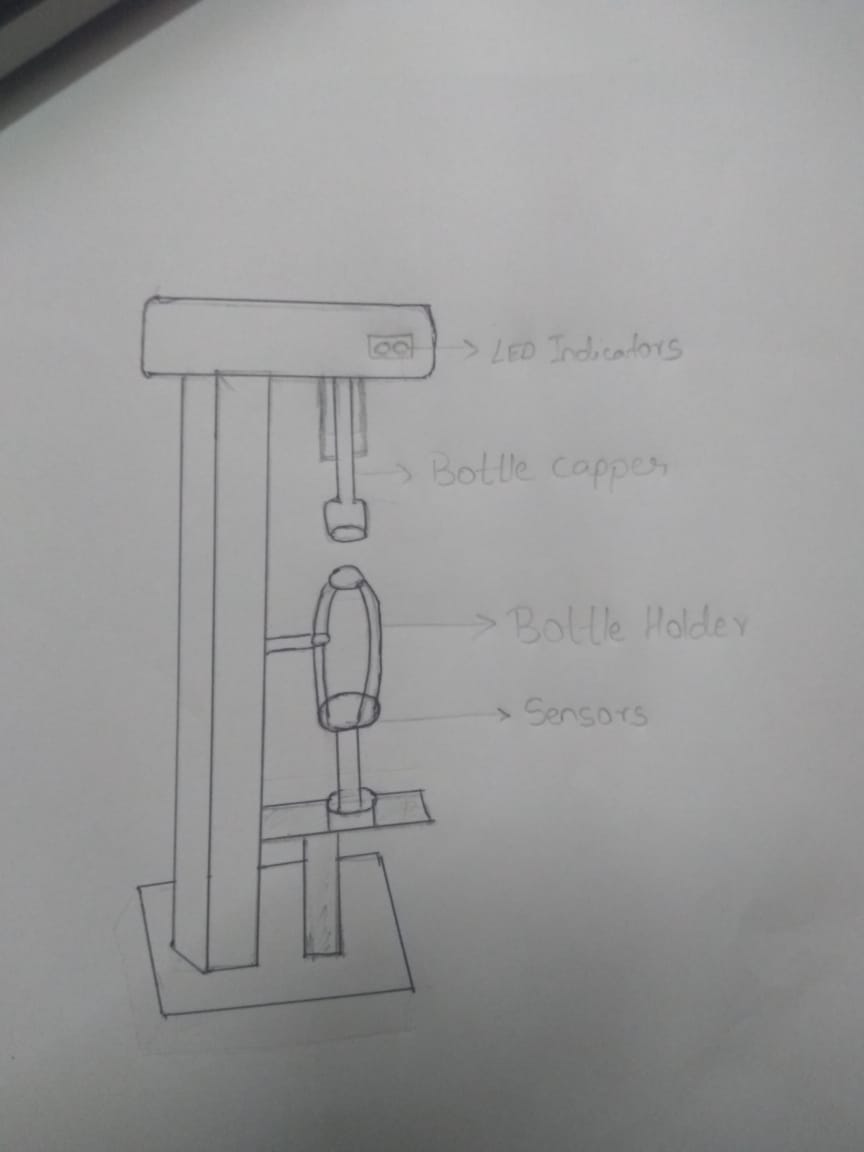 LED Indicators
Bottle capper
Bottle Holder
Sensors